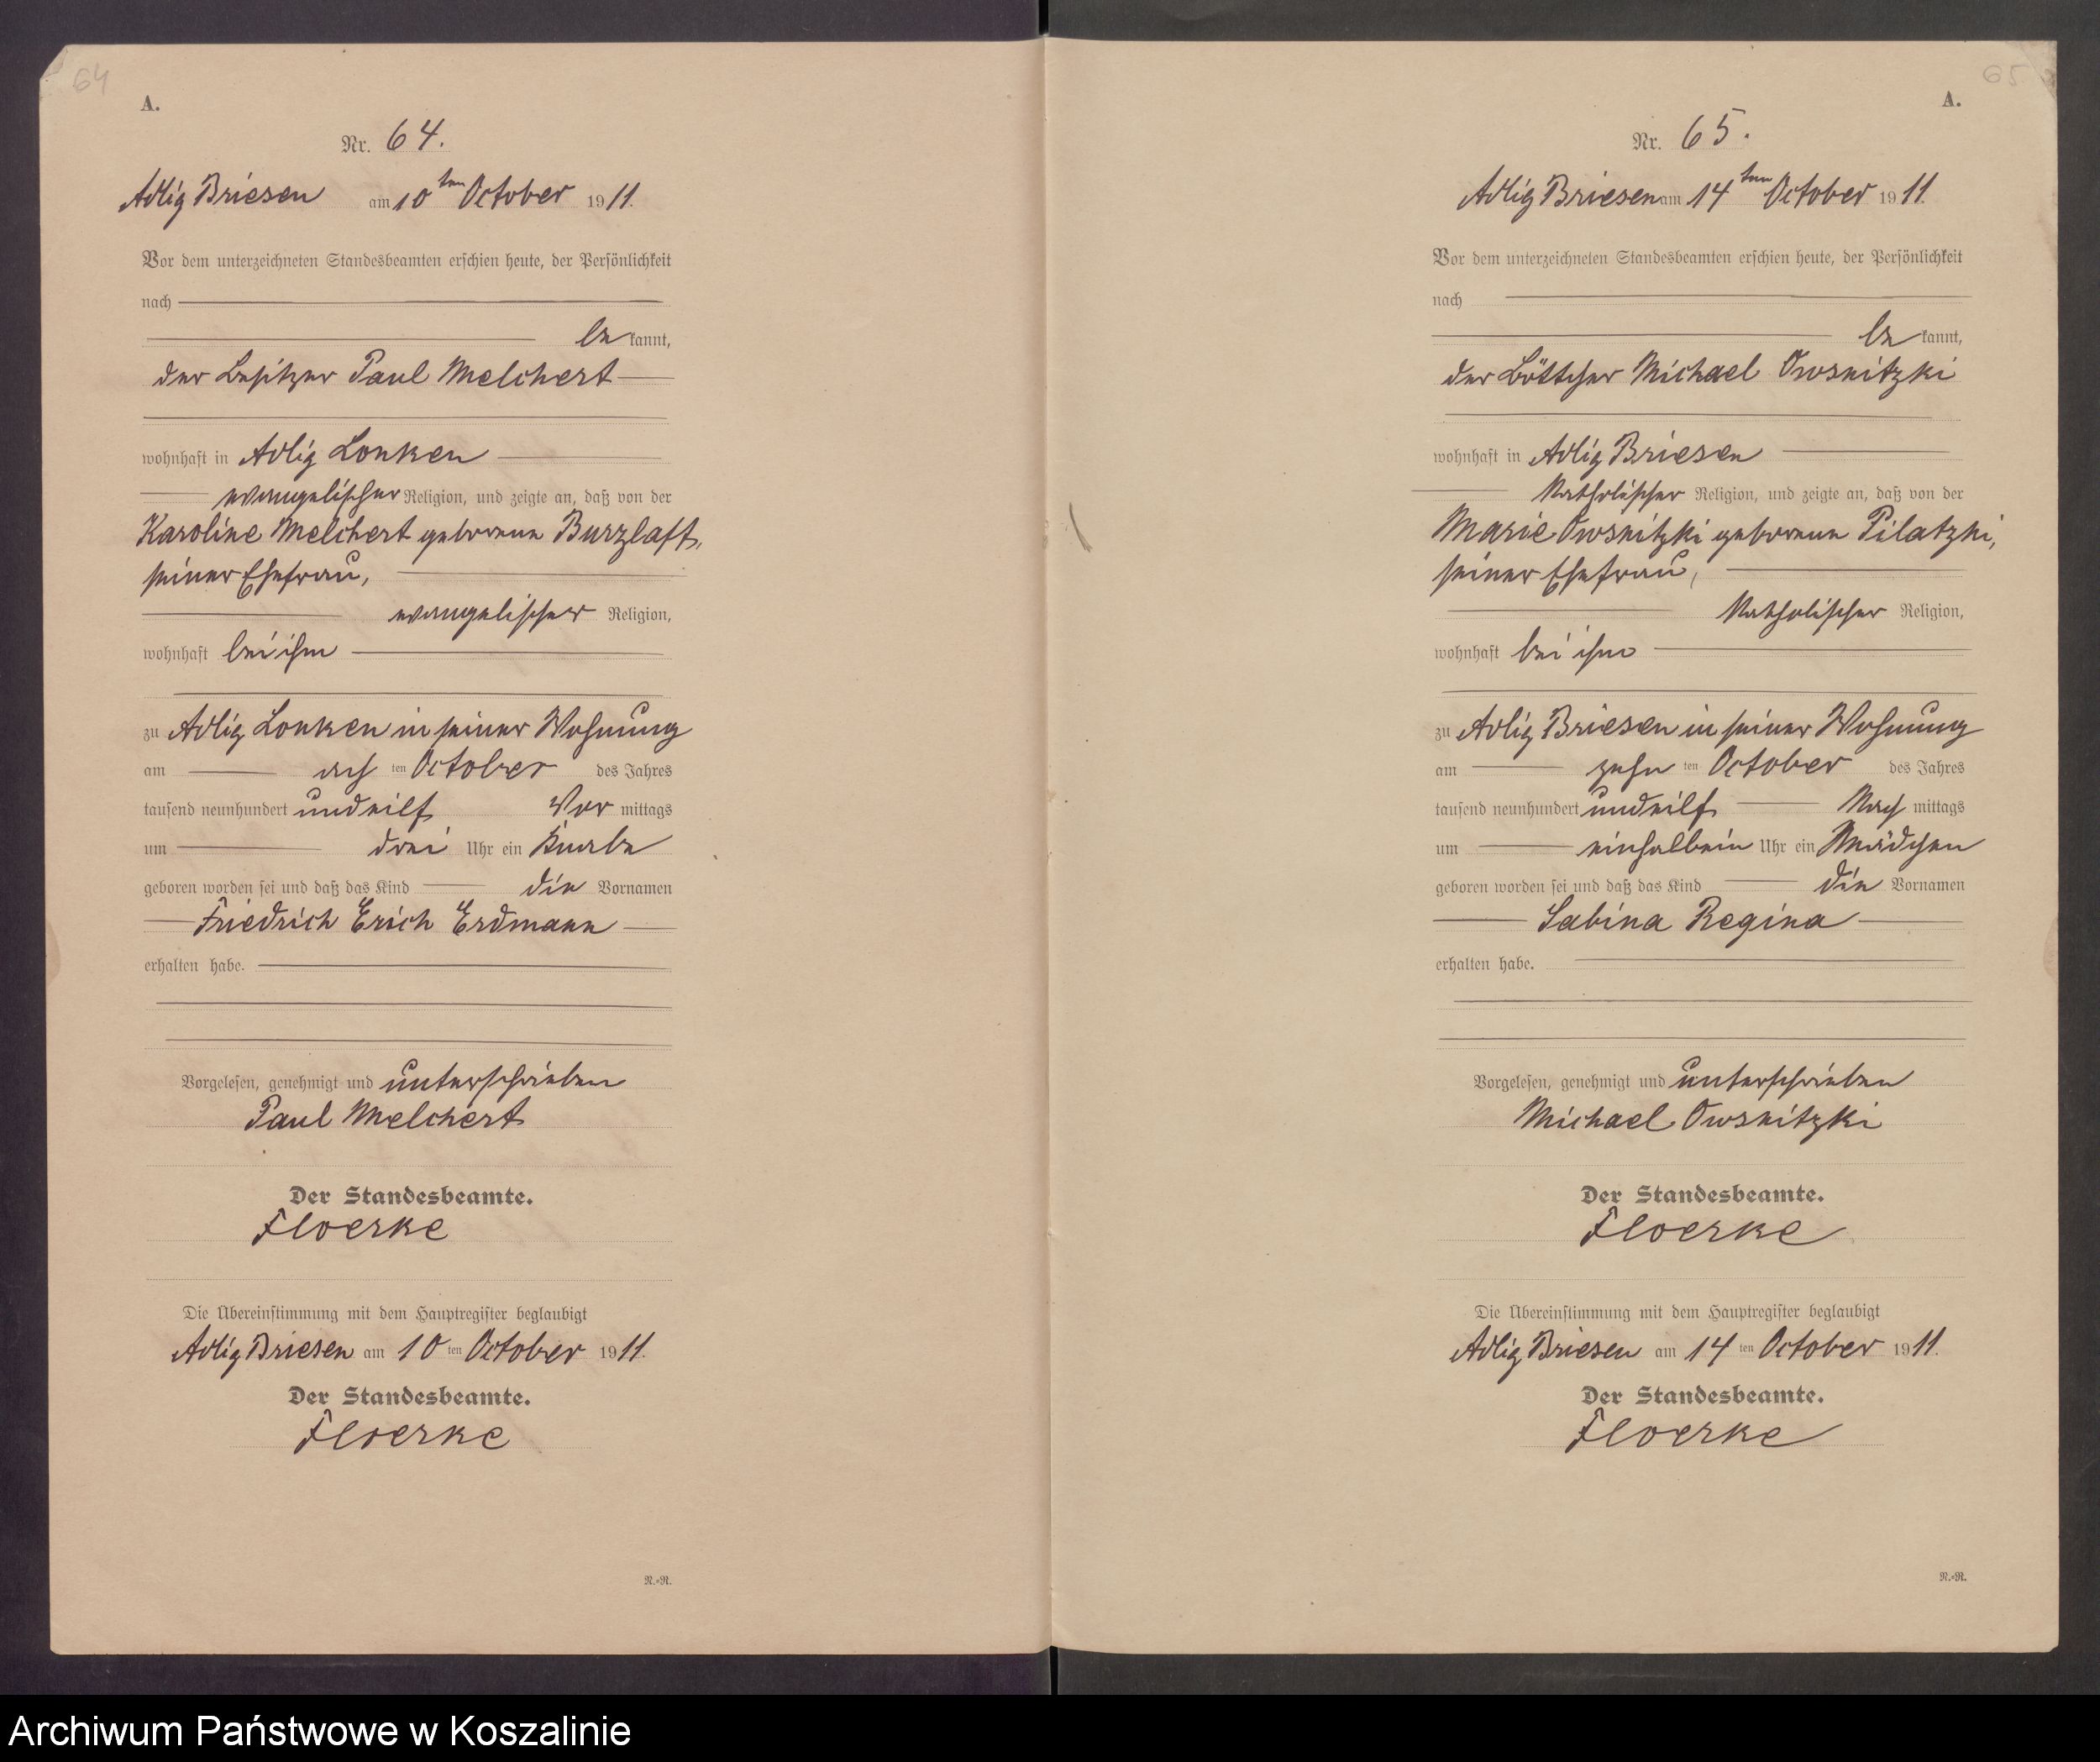 64
A.
Nr. 64.
Adlig Briesen am 10ten October 1911.
Vor dem unterzeichneten Standesbeamten erschien heute, der Persönlichkeit
nach
be kannt,
der Besitzer Paul Melchert
wohnhaft in Adlig Lonken
evangelischer Religion, und zeigte an, daß von der
Karoline Melchert geborene Burzlaff,
seiner Ehefrau,
evangelischer Religion,
wohnhaft bei ihm
zu Adlig Lonken in seiner Wohnung
am ach ten October des Jahres
tausend neunhundert und eilf Vor mittags
um drei Uhr ein Knabe
geboren worden sei und daß das Kind die Vornamen
Friedrich Erich Erdmann
erhalten habe.
Vorgelesen, genehmigt und unterschrieben
Paul Melchert
Der Standesbeamte.
Floerke
Die Übereinstimmung mit dem Hauptregister beglaubigt
Adlig Briesen am 10 ten October 1911.
Der Standesbeamte.
Floerke
N.-N.
65
A.
Nr. 65.
Adlig Briesen am 14ten October 1911.
Vor dem unterzeichneten Standesbeamten erschien heute, der Persönlichkeit
nach
be kannt,
der Böttcher Michael Owsnitzki
wohnhaft in Adlig Briesen
katholischer Religion, und zeigte an, daß von der
Marie Owsnitzki geborene Pilatzki,
seiner Ehefrau,
katholischer Religion,
wohnhaft bei ihm
zu Adlig Briesen in seiner Wohnung
am zehn ten October des Jahres
tausend neunhundert und eilf Nach mittags
um einhalbein Uhr ein Mädchen
geboren worden sei und daß das Kind die Vornamen
Sabina Regina
erhalten habe.
Vorgelesen, genehmigt und unterschrieben
Michael Owsnitzki
Der Standesbeamte.
Floerke
Die Übereinstimmung mit dem Hauptregister beglaubigt
Adlig Briesen am 14 ten October 1911.
Der Standesbeamte.
Floerke
N.-N.
Archiwum Państwowe w Koszalinie